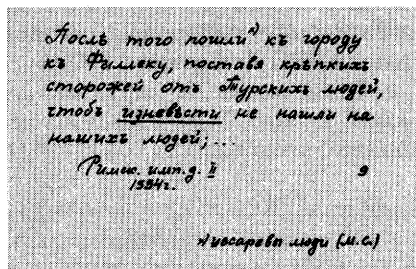 Послѣ того пошли ᴬ⁾ къ городу
къ Филлеку, поставя крѣпкихъ
сторожей отъ Турскихъ людей,
чтобъ изневѣсти не нашли на
нашихъ людей; ...
Римск. имп. д. II 9
1594г.
ᴬ⁾ цесаревы люди (М.С.)